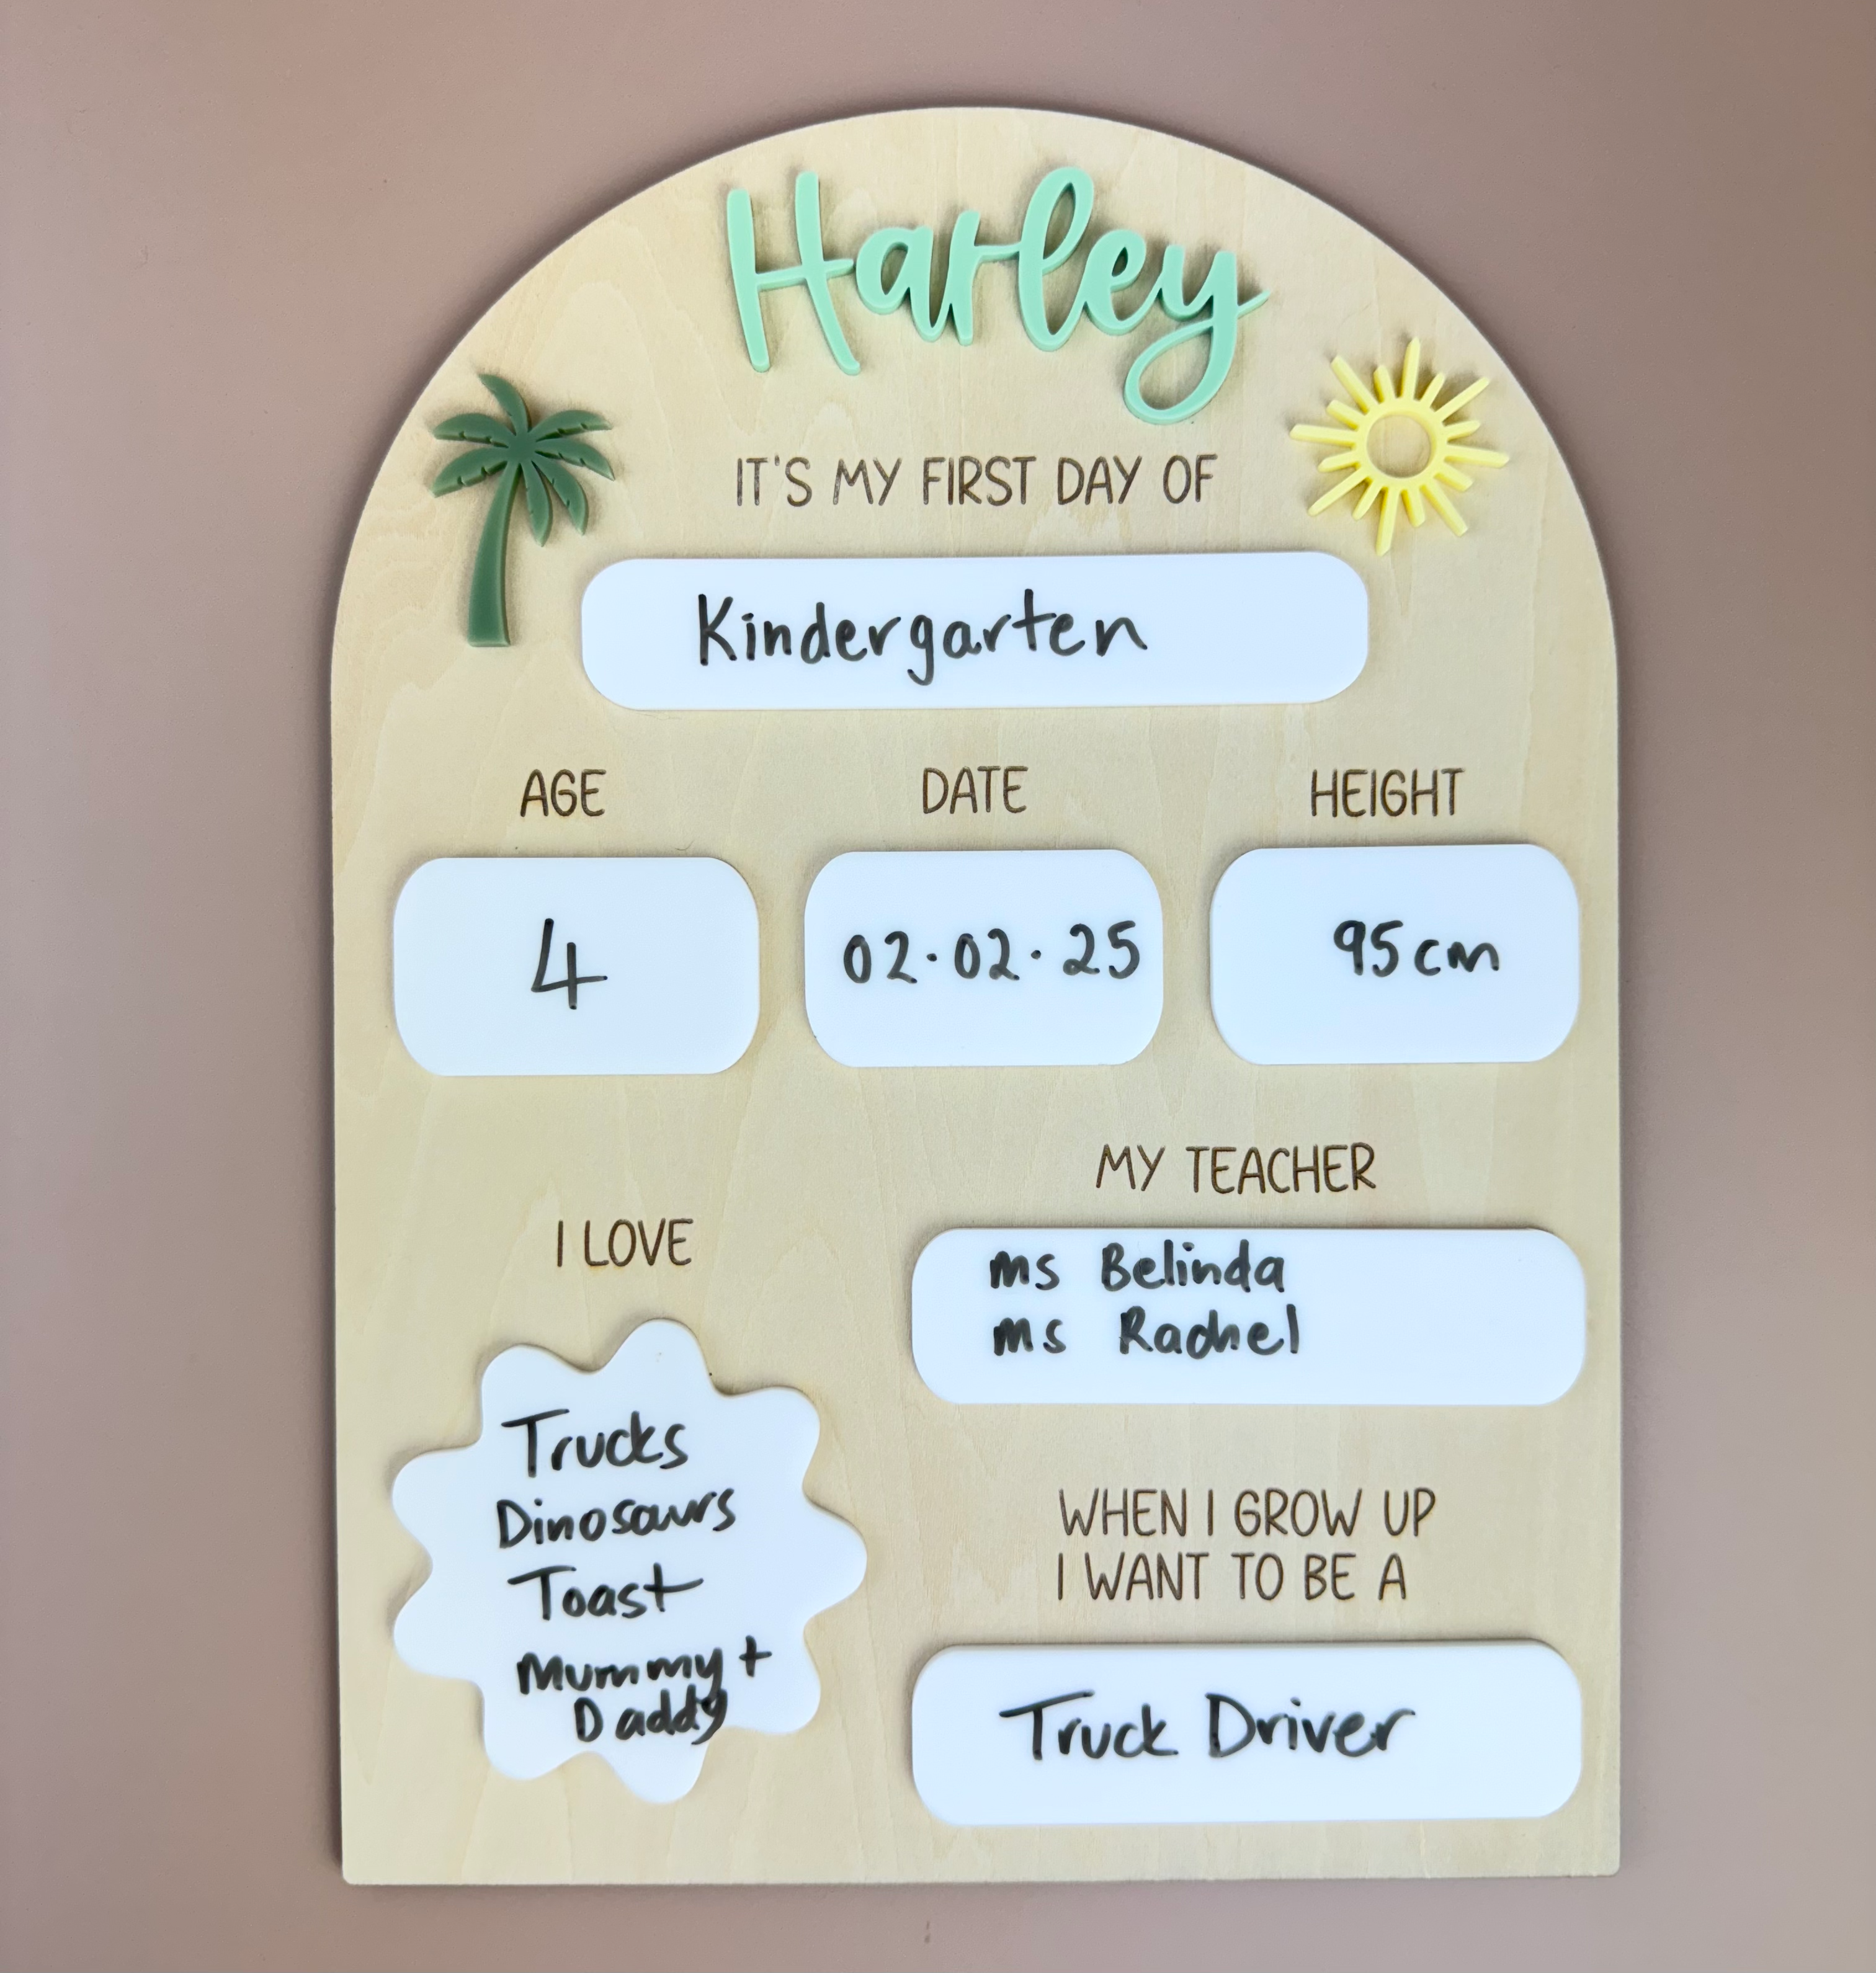 Harley
IT'S MY FIRST DAY OF
Kindergarten
AGE
4
DATE
02.02.25
HEIGHT
95cm
I LOVE
Trucks
Dinosaurs
Toast
Mummy +
Daddy
MY TEACHER
Ms Belinda
Ms Rachel
WHEN I GROW UP
I WANT TO BE A
Truck Driver